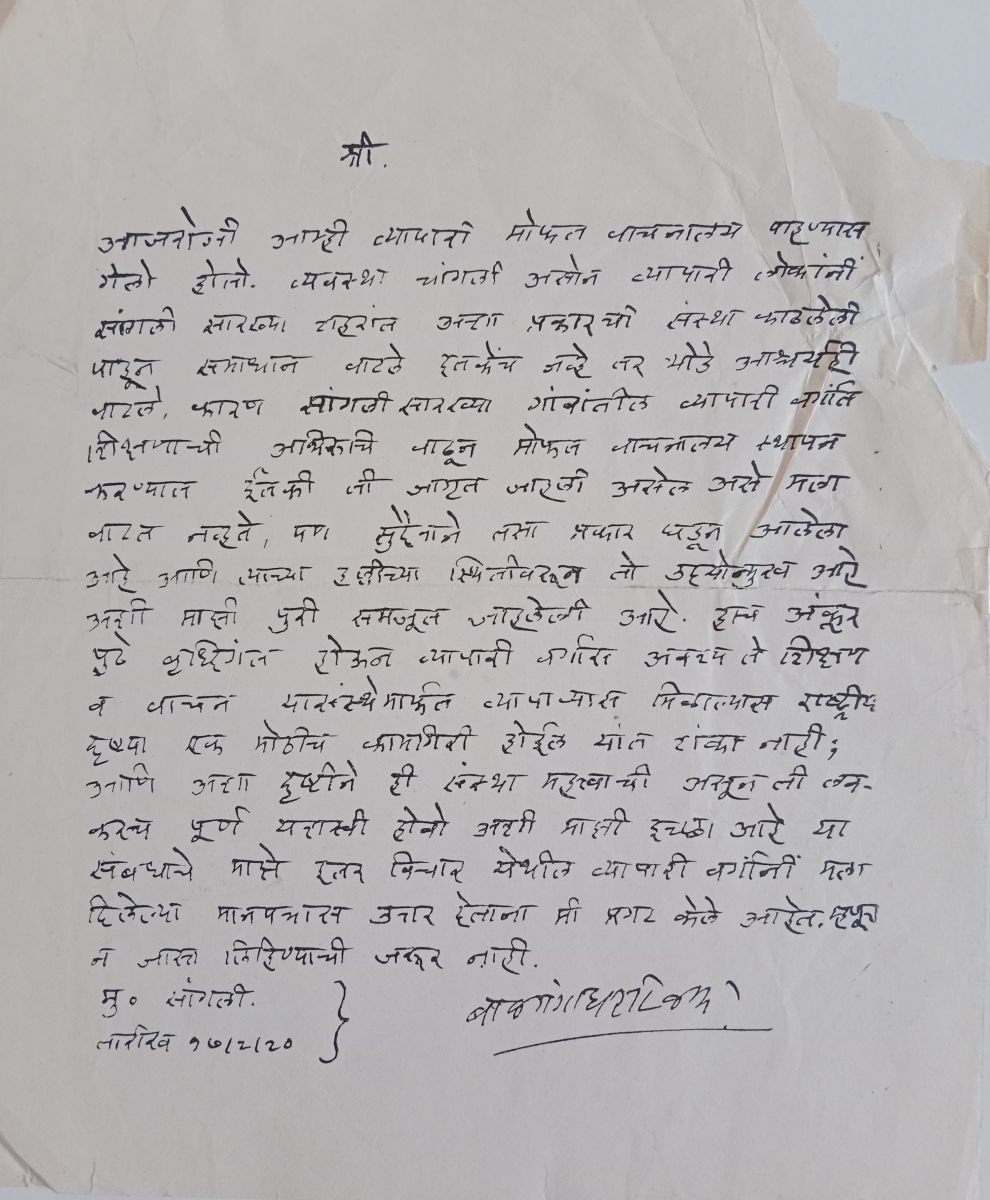 श्री.
आजरोजी आम्ही व्यापारी मोफत वाचनालय पाहण्यास
गेलो होतो. व्यवस्था चांगली असोन व्यापारी लोकांनीं
सांगली सारख्या शहरांत अशा प्रकारची संस्था काढलेली
पाहून समाधान वाटले इतकेंच नव्हे तर थोडे आश्चर्यही
वाटले, कारण सांगली सारख्या गांवांतील व्यापारी वर्गात
शिक्षणाची अभिरुचि वाढून मोफत वाचनालय स्थापन
करण्यात ईतकी ती जागृत जाहली असेल असे मला
वाटत नव्हते, पण सुदैवाने तसा प्रकार घडून आलेला
आहे आणि त्याच्या हल्लीच्या स्थितीवरून तो उदयोन्मुख आहे
अशी माझी पुरी समजूत जाहलेली आहे. हाच अंकूर
पुढे वृद्धिंगत होऊन व्यापारी वर्गास अवश्य ते शिक्षण
व वाचन यासंस्थेमार्फत व्यापाऱ्यास मिळाल्यास राष्ट्रीय
दृष्ट्या एक मोठीच कामगिरी होईल यांत शंका नाही;
आणि अशा दृष्टीने ही संस्था महत्वाची असून ती लव-
करच पूर्ण यशस्वी होवो अशी माझी इच्छा आहे या
संबधाचे माझे इतर विचार येथील व्यापारी वर्गानीं मला
दिलेल्या मानपत्रास उत्तर देताना मी प्रगट केले आहेत. म्हणून
न जास्त लिहिण्याची जरूर नाही.
मु० सांगली.
तारीख १७/२/२०
बाळ गंगाधर टिळक